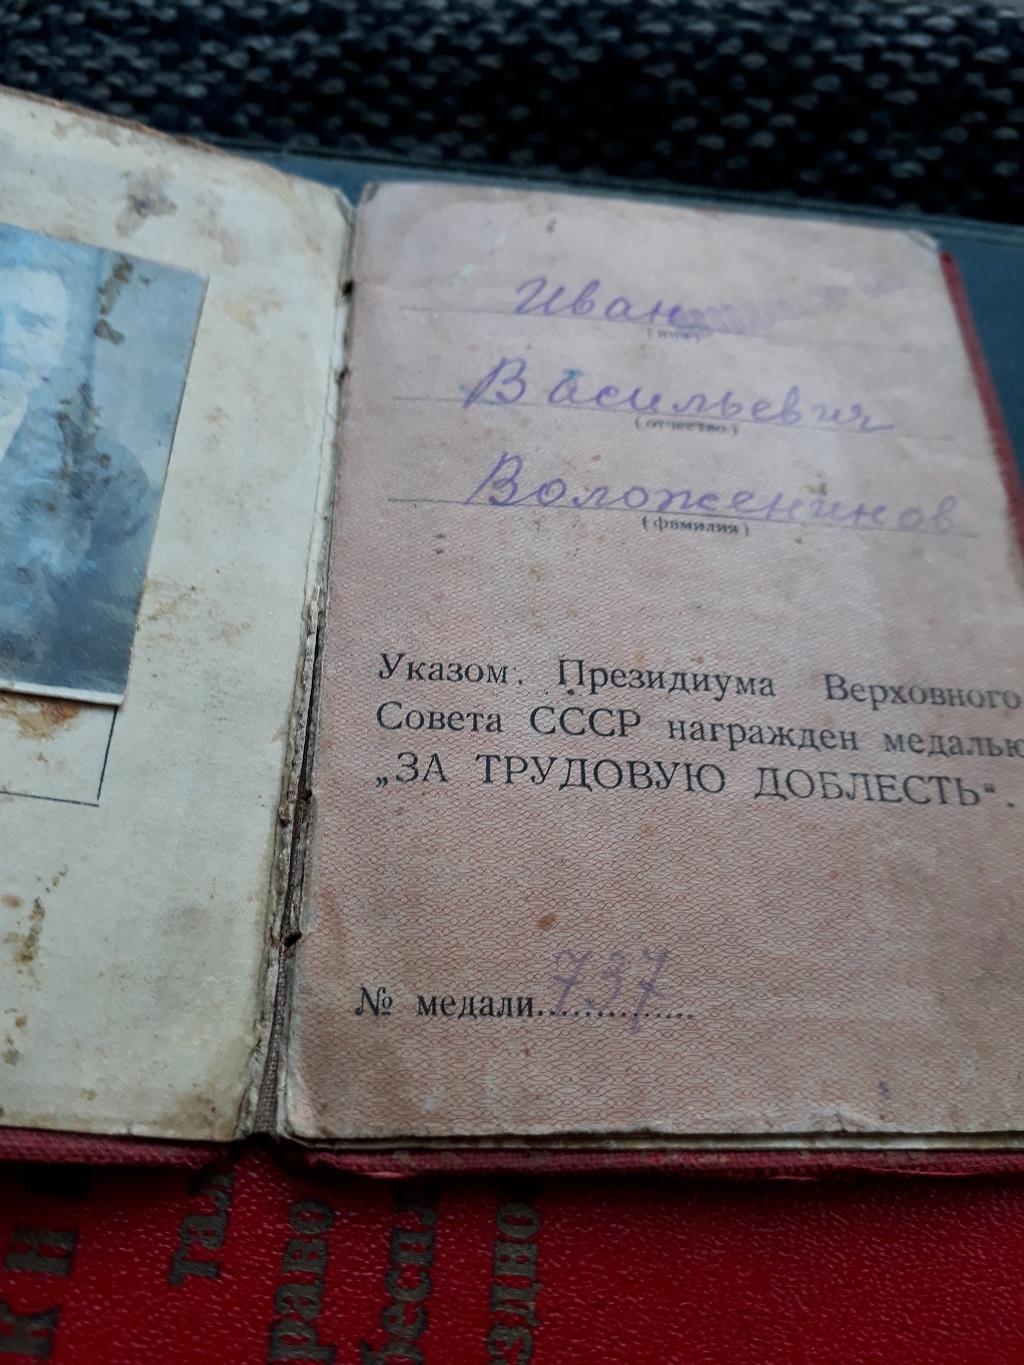 Иван
(имя)
Васильевич
(отчество)
Воложенинов
(фамилия)
Указом Президиума Верховного
Совета СССР награжден медалью
„ЗА ТРУДОВУЮ ДОБЛЕСТЬ“.
№ медали..............737
КН
тал
раво
беспл
здно